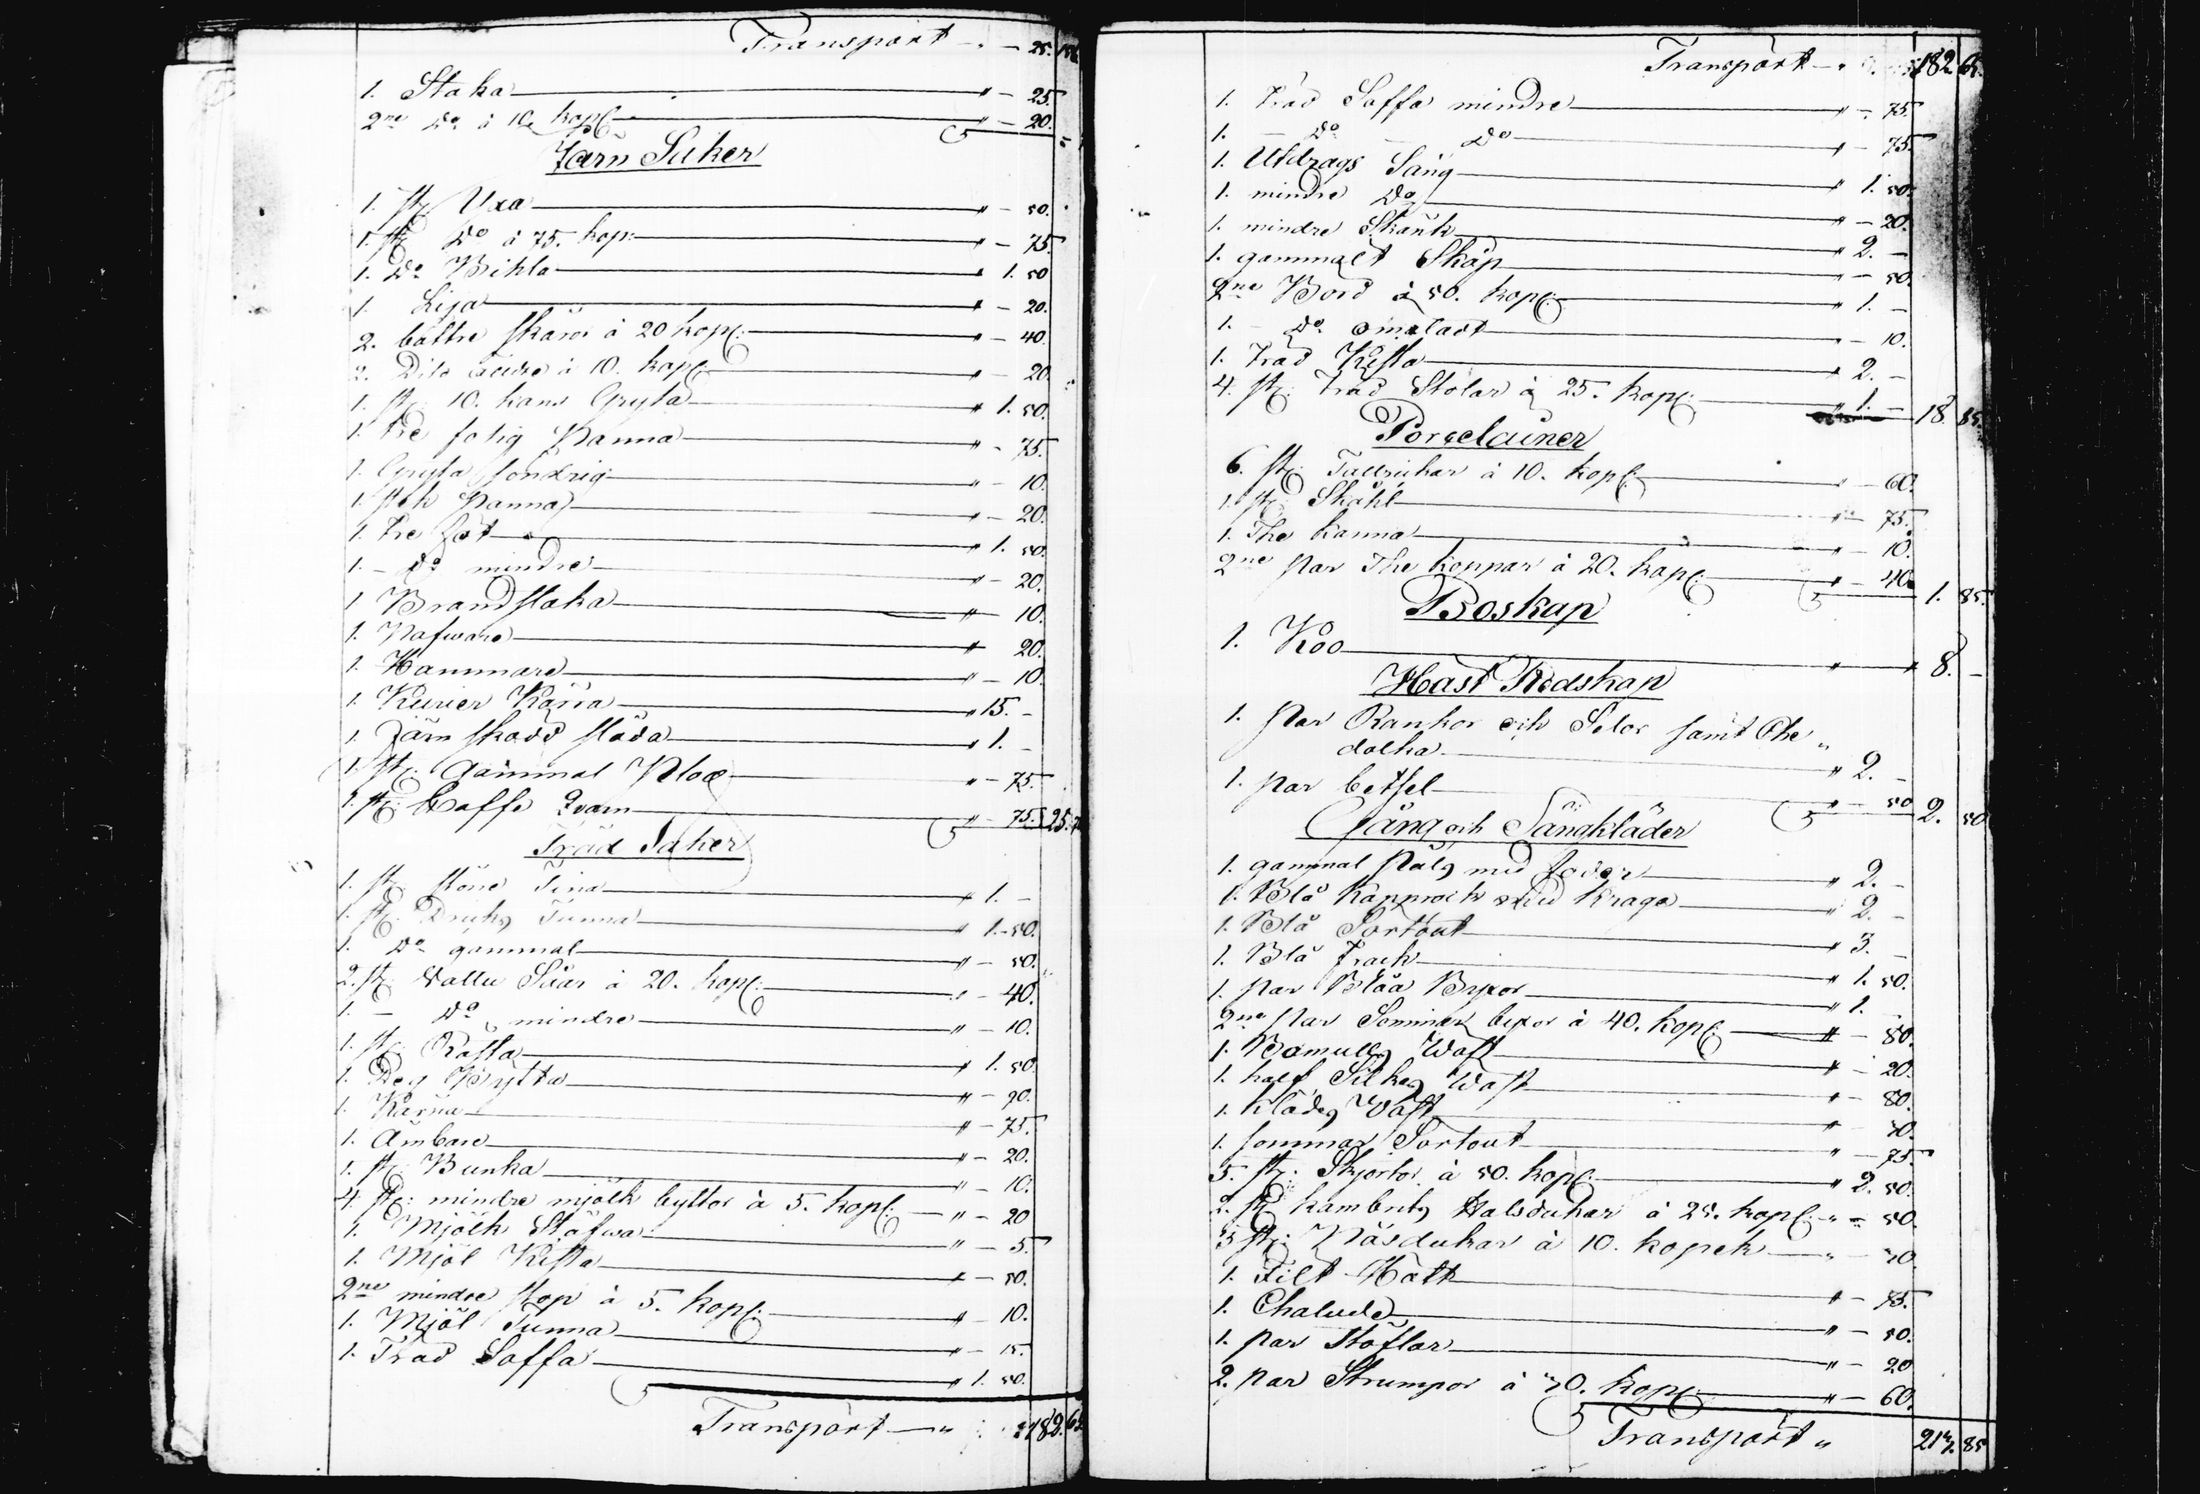 Transport — " — 25. 156
1. Staka — " — 25.
2ne Do à 10. kop: — " — 20.
Järn Saker
1. st: Yxa — " — 50.
1. st: Do à 75. kop: — " — 75
1. Do Bihla — " 1. 50
1. Lija — " — 20.
2. bättre skäror à 20 kop: — " — 40.
2. Dito à 10. kop: — " — 20.
1. st: 10. kans Gryta — " 1. 50.
1. tre fotig Panna — " — 75.
1. Gryta söndrig — " — 10.
1. stek Panna — " — 20.
1. tre fot — " 1. 50.
1. — Do mindre — " — 20.
1 Brandstaka — " 10.
1. Nafware — " 20.
1. Hammare — " — 10.
1. Kurier Kärra — " 15. —
1. Järn skodd släda — " 1. —
1. st: Gammal Plog — " — 75.
1. st: Caffe Qvarn — " — 75. 25.
Träd Saker
1. st: större Tina — " 1. —
1. st: Dricks Tunna — " 1. 50.
1. Do gammal — " — 50.
2. st: Vattu Såar à 20. kop: — " — 40.
1. — Do mindre — " — 10.
1. st: Balja — " 1. 50.
1. Deg Bytta — " — 20.
1. Kärna — " — 75.
1. Ämbare — " — 20.
1. st: Bunka — " — 10.
4. st: mindre mjölk byttor à 5. kop: — " — 20
1. Mjölk Stäfwa — " — 5.
1. Mjöl Kista — " — 50.
2ne mindre stop à 5. kop: — " — 10.
1. Mjöl Tunna — " — 15.
1. Träd Saffa — " 1. 50.
Transport — " 182. 65
Transport — " 182 65.
1. träd Saffa mindre — " — 75.
1. — Do — Do — " — 75.
1. Utdrags Säng — " 1. 50.
1. mindre Do — " — 20.
1. mindre Skänk — " 2. —
1. gammalt Skåp — " — 50.
2ne Bord à 50. kop: — " 1. —
1. — Do omåladt — " — 10.
1. träd Kista — " 2. —
4. st: träd Stolar à 25. kop: — " 1. — 18. 85.
Porcelainer
6. st: Tallrickar à 10. kop: — " — 60.
1. st: Skåhl — " — 75.
1. The kanna — " — 10.
2ne par The koppar à 20. kop: — " — 40. 1. 85.
Boskap
1. Koo — " 8. —
Häst Redskap
1. par Rankor och Selar samt Ohe "
dolka — " 2. —
1. par betsel — " — 50 2. 50
Gång och Sängkläder
1. gammal päls med foder — " 2. —
1. Blå Kapprock med Kraga — " 2. —
1. Blå Sortout — " 3. —
1. Blå Frack — " 1. 50.
1. par Blåa Byxor — " 1. —
2ne par Sommar bexor à 40. kop: — " — 80.
1. Bomulls Wäst — " — 20.
1. half Silkes Wäst — " — 80.
1. Klädes Wäst — " — 70.
1. sommar Sortout — " — 75.
5. st: Skjortor à 50. kop: — " 2. 50.
2. st: kambriks Halsdukar à 25. kop: " — 50.
3 st: Näsdukar à 10. kopek — " — 30
1. Filt Hatt — " — 75.
1. Chalude — " — 50.
1. par Stöflar — " — 20
2. par Strumpor à 30. kop: — " — 60.
Transport " 217. 85